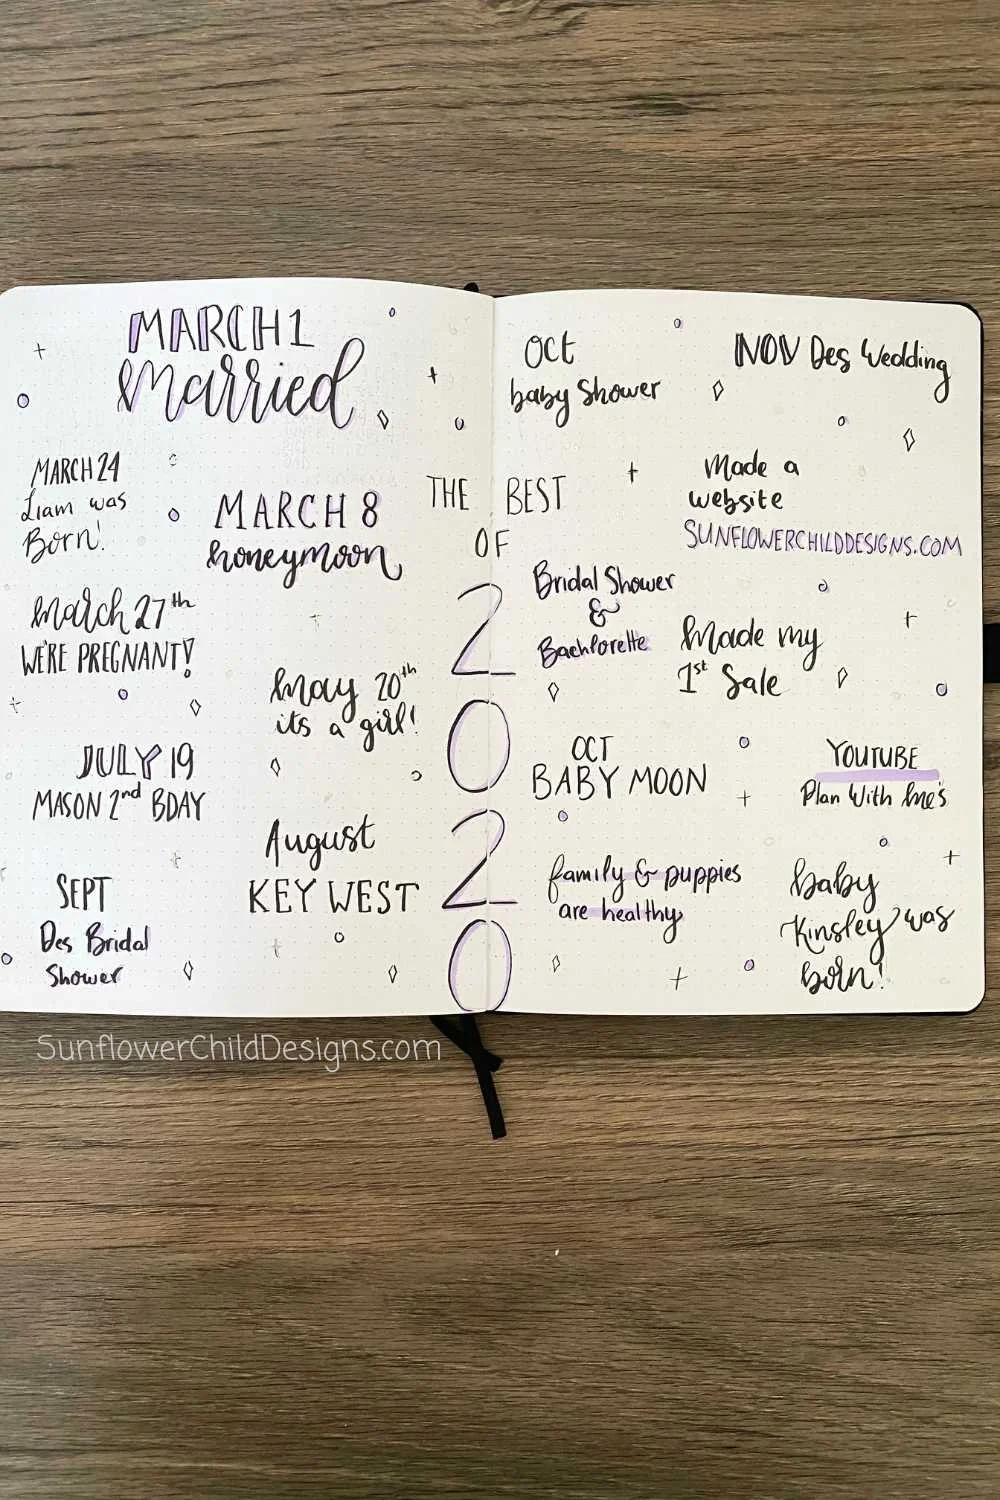 MARCH 1
Married
MARCH 24
Liam was
Born!
MARCH 8
honeymoon
March 27th
WE'RE PREGNANT!
May 20th
its a girl!
JULY 19
MASON 2nd BDAY
August
KEY WEST
SEPT
Des Bridal
Shower
THE BEST
OF
2
0
2
0
Oct
baby Shower
NOV Des Wedding
Made a
website
SUNFLOWERCHILDDESIGNS.COM
Bridal Shower
&
Bachlorette
Made my
1st Sale
OCT
BABY MOON
YOUTUBE
Plan With Me's
family & puppies
are healthy
baby
Kinsley was
born!
SunflowerChildDesigns.com